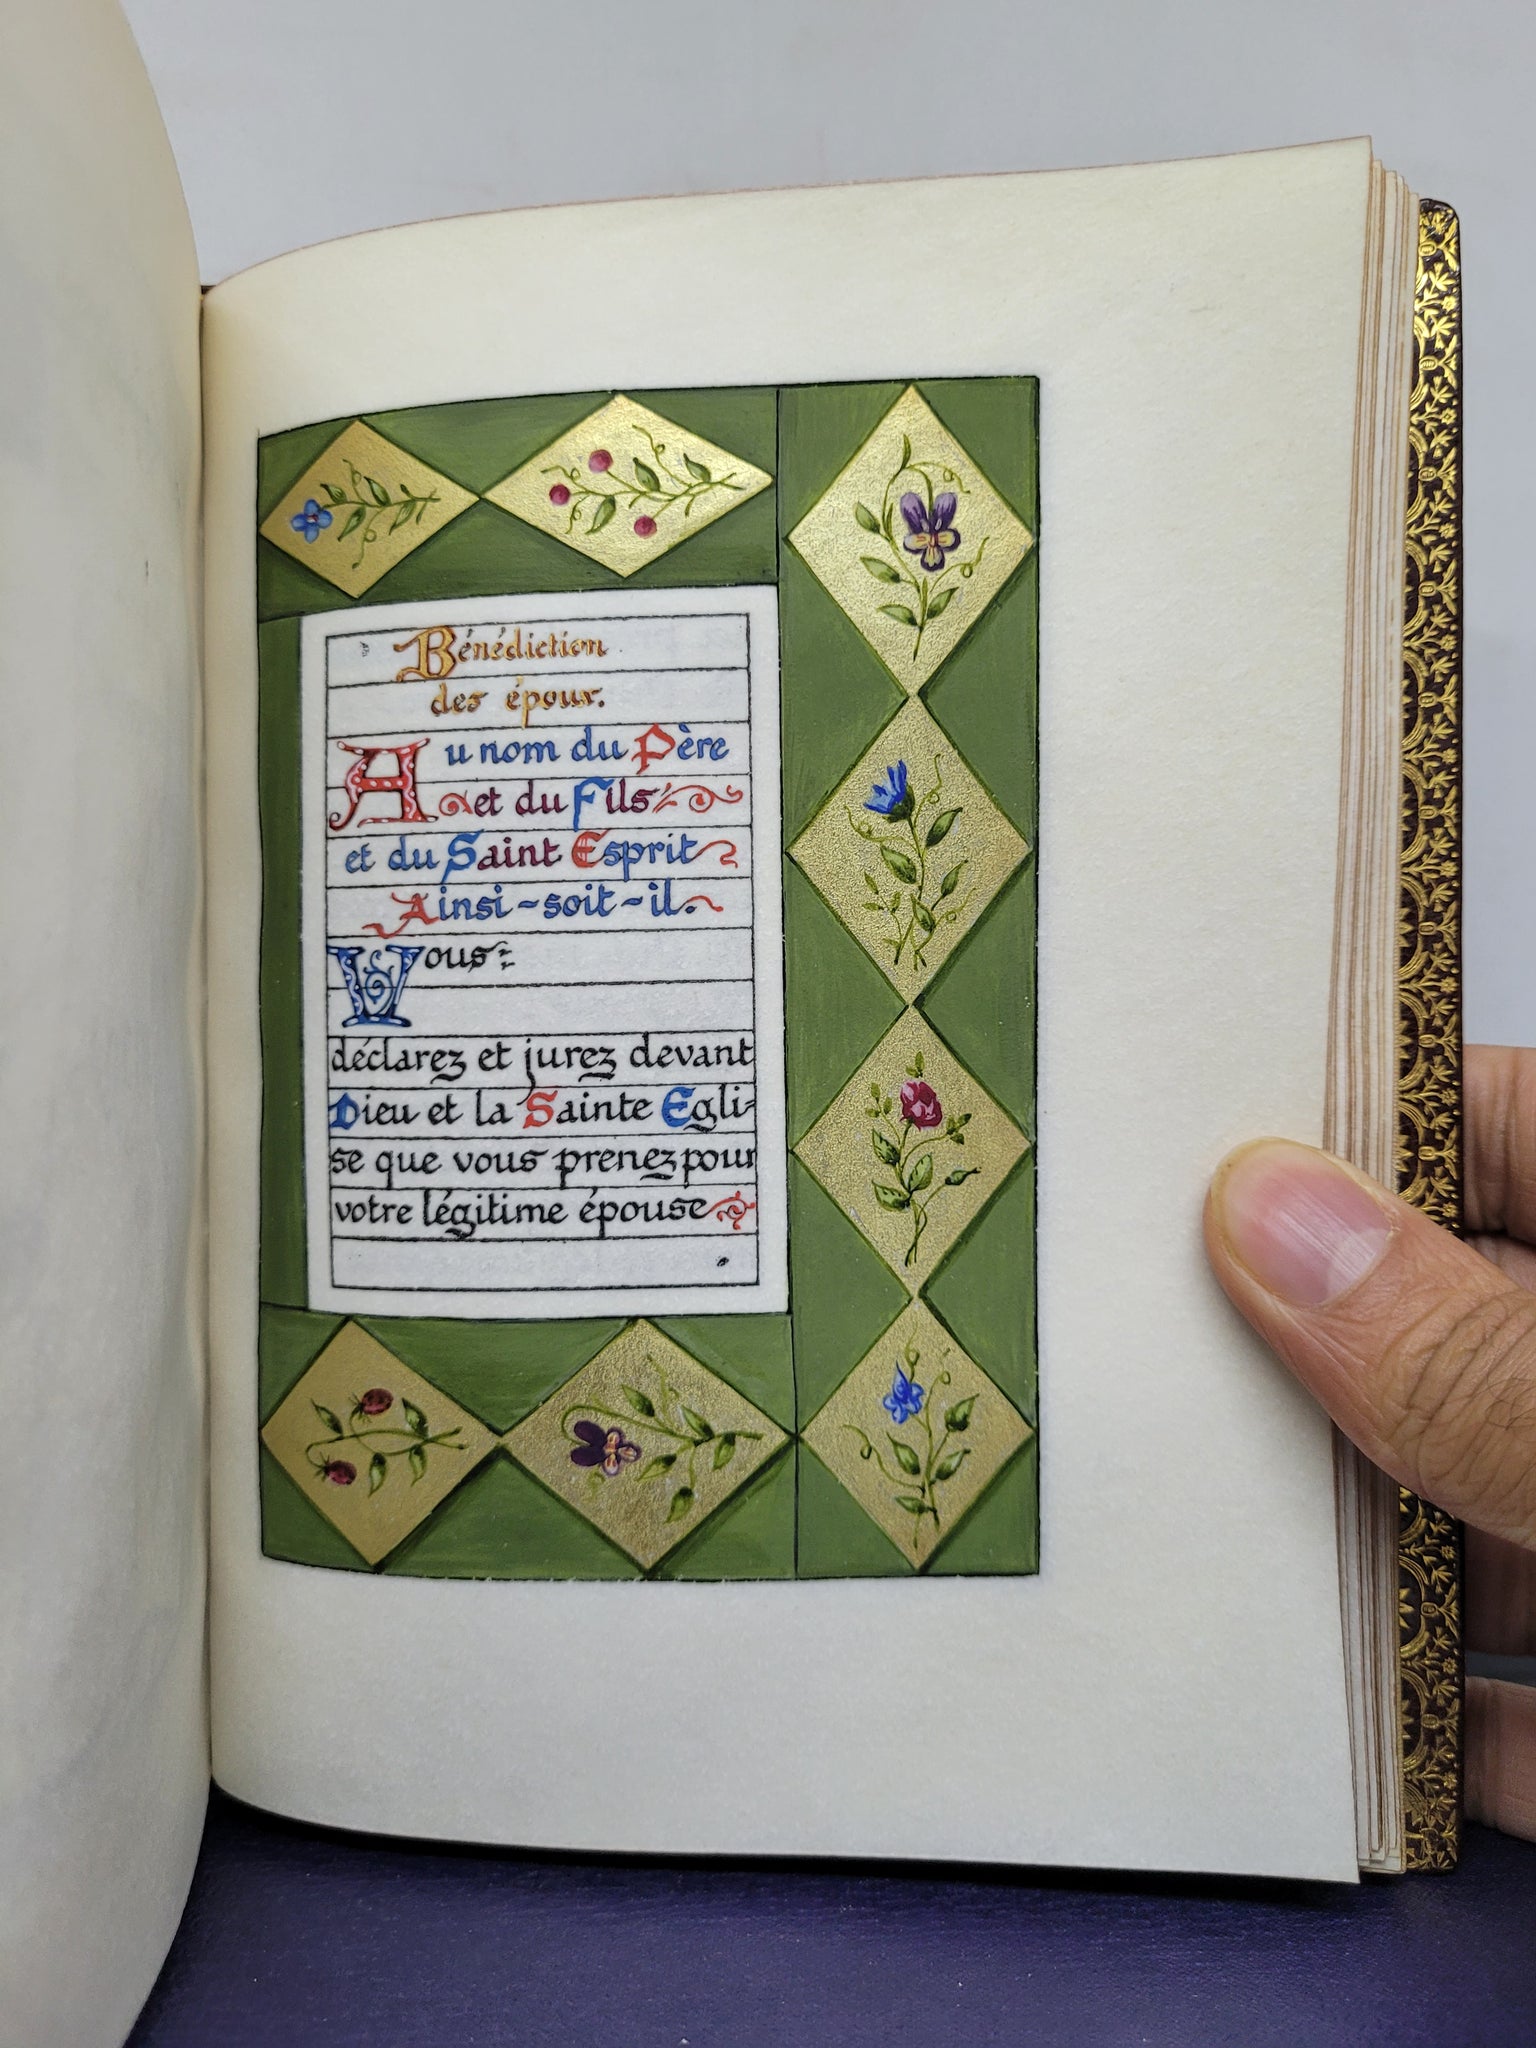 Bénédiction
des époux.
Au nom du Père
et du Fils
et du Saint Esprit
Ainsi-soit-il.
Vous:
déclarez et jurez devant
Dieu et la Sainte Egli-
se que vous prenez pour
votre légitime épouse